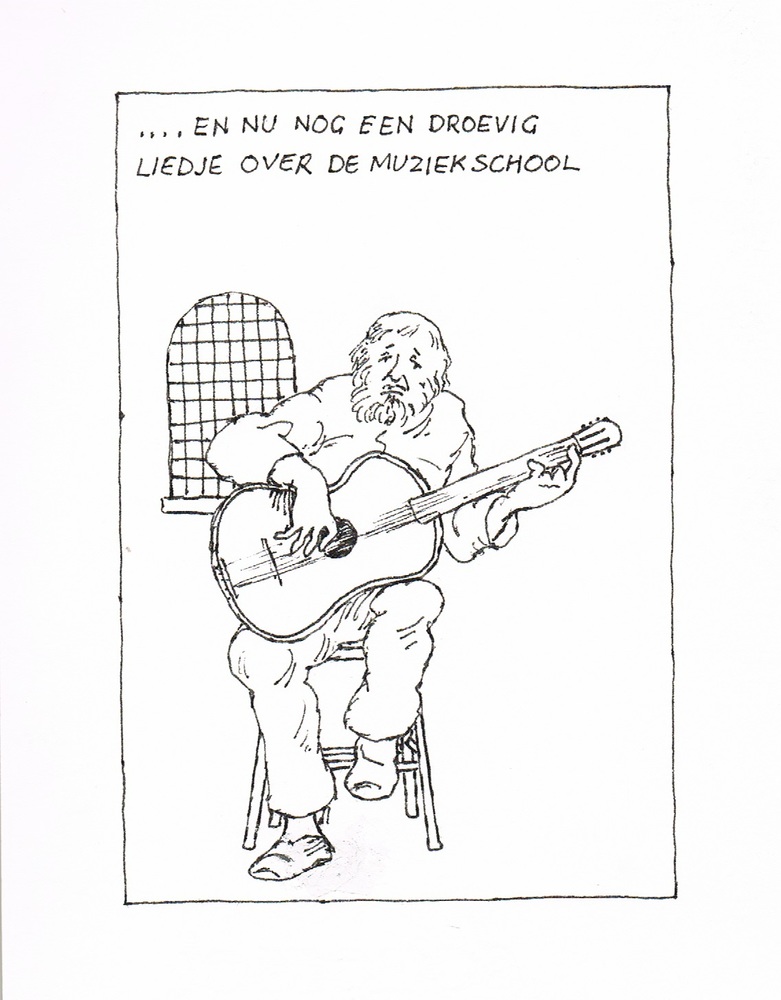 .... EN NU NOG EEN DROEVIG
LIEDJE OVER DE MUZIEKSCHOOL